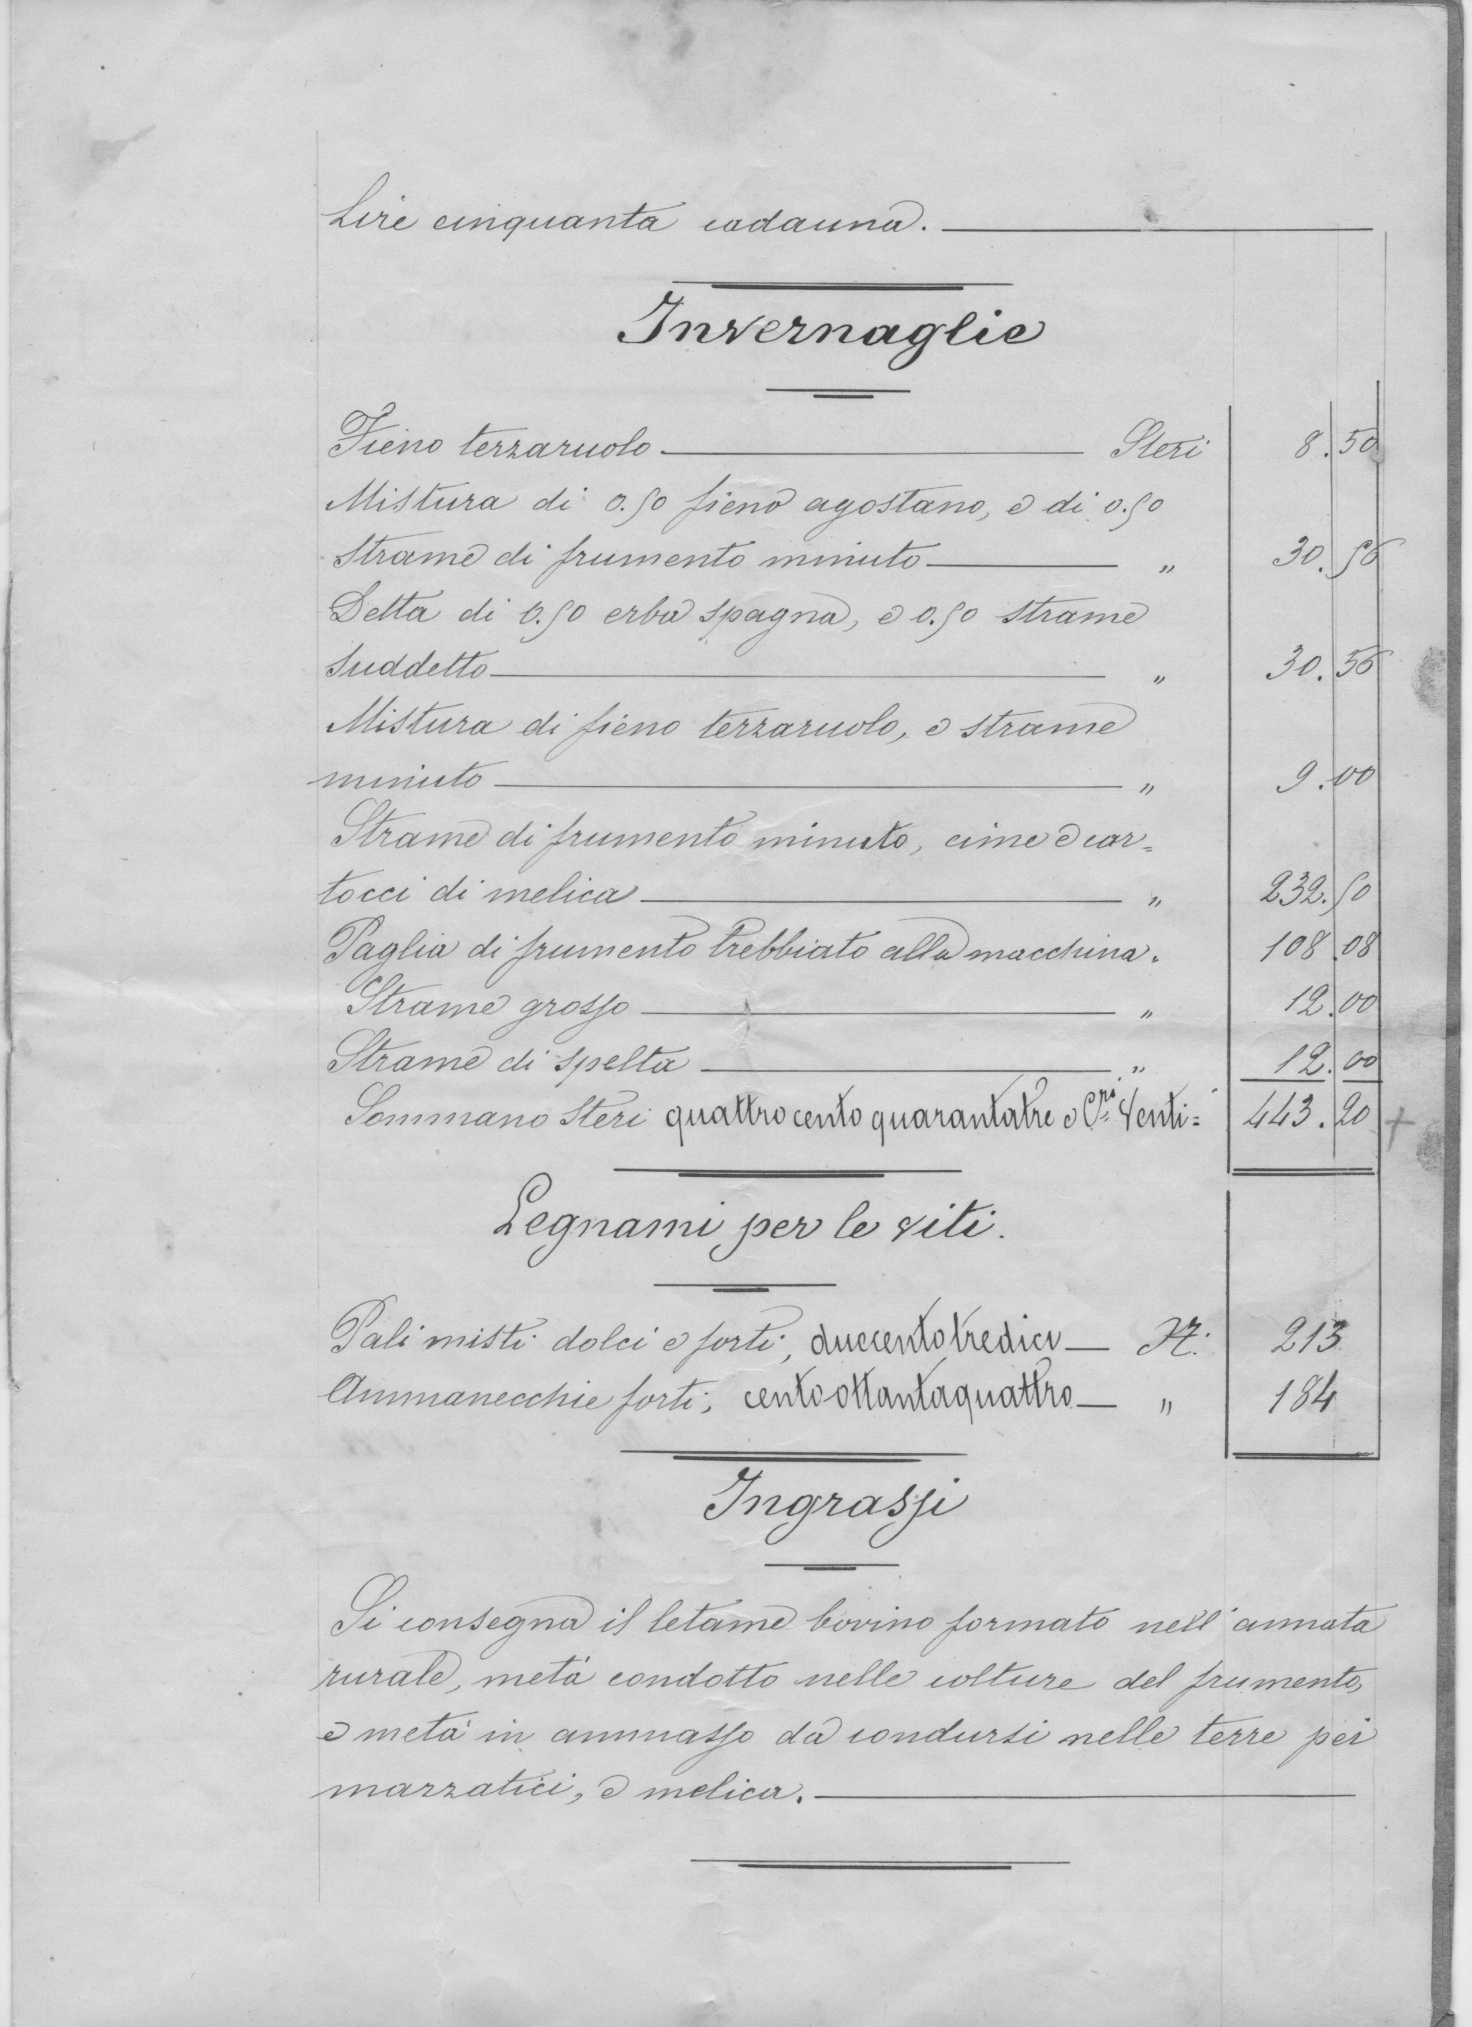 Lire cinquanta cadauna.
Invernaglie
Fieno terzaruolo Steri 8.50
Mistura di 0.50 fieno agostano, e di 0.50
strame di frumento minuto " 30.56
Detta di 0.50 erba spagna, e 0.50 strame
suddetto " 30.56
Mistura di fieno terzaruolo, e strame
minuto " 9.00
Strame di frumento minuto, cime e car=
tocci di melica " 232.50
Paglia di frumento trebbiato alla macchina " 108.08
Strame grosso " 12.00
Strame di spelta " 12.00
Sommano Steri quattrocento quarantatre e C.ri Venti= 443.20 +
Legnami per le viti.
Pali misti dolci e forti, duecentotredici N. 213
Ammanecchie forti, centoottantaquattro " 184
Ingrassi
Si consegna il letame bovino formato nell'annata
rurale, metà condotto nelle colture del frumento,
e metà in ammasso da condursi nelle terre pei
marzatici, e melica.